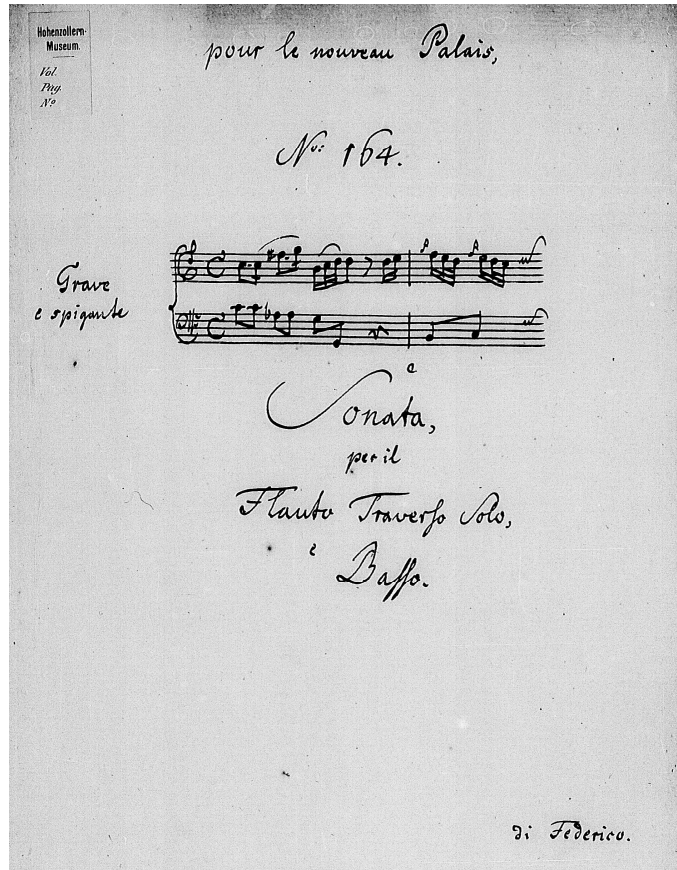 Hohenzollern-
Museum.
Vol.
Pag.
No
pour le nouveau Palais,
No: 164.
Grave
e spigante
Sonata,
per il
Flauto Traverso Solo,
e
Basso.
di Federico.